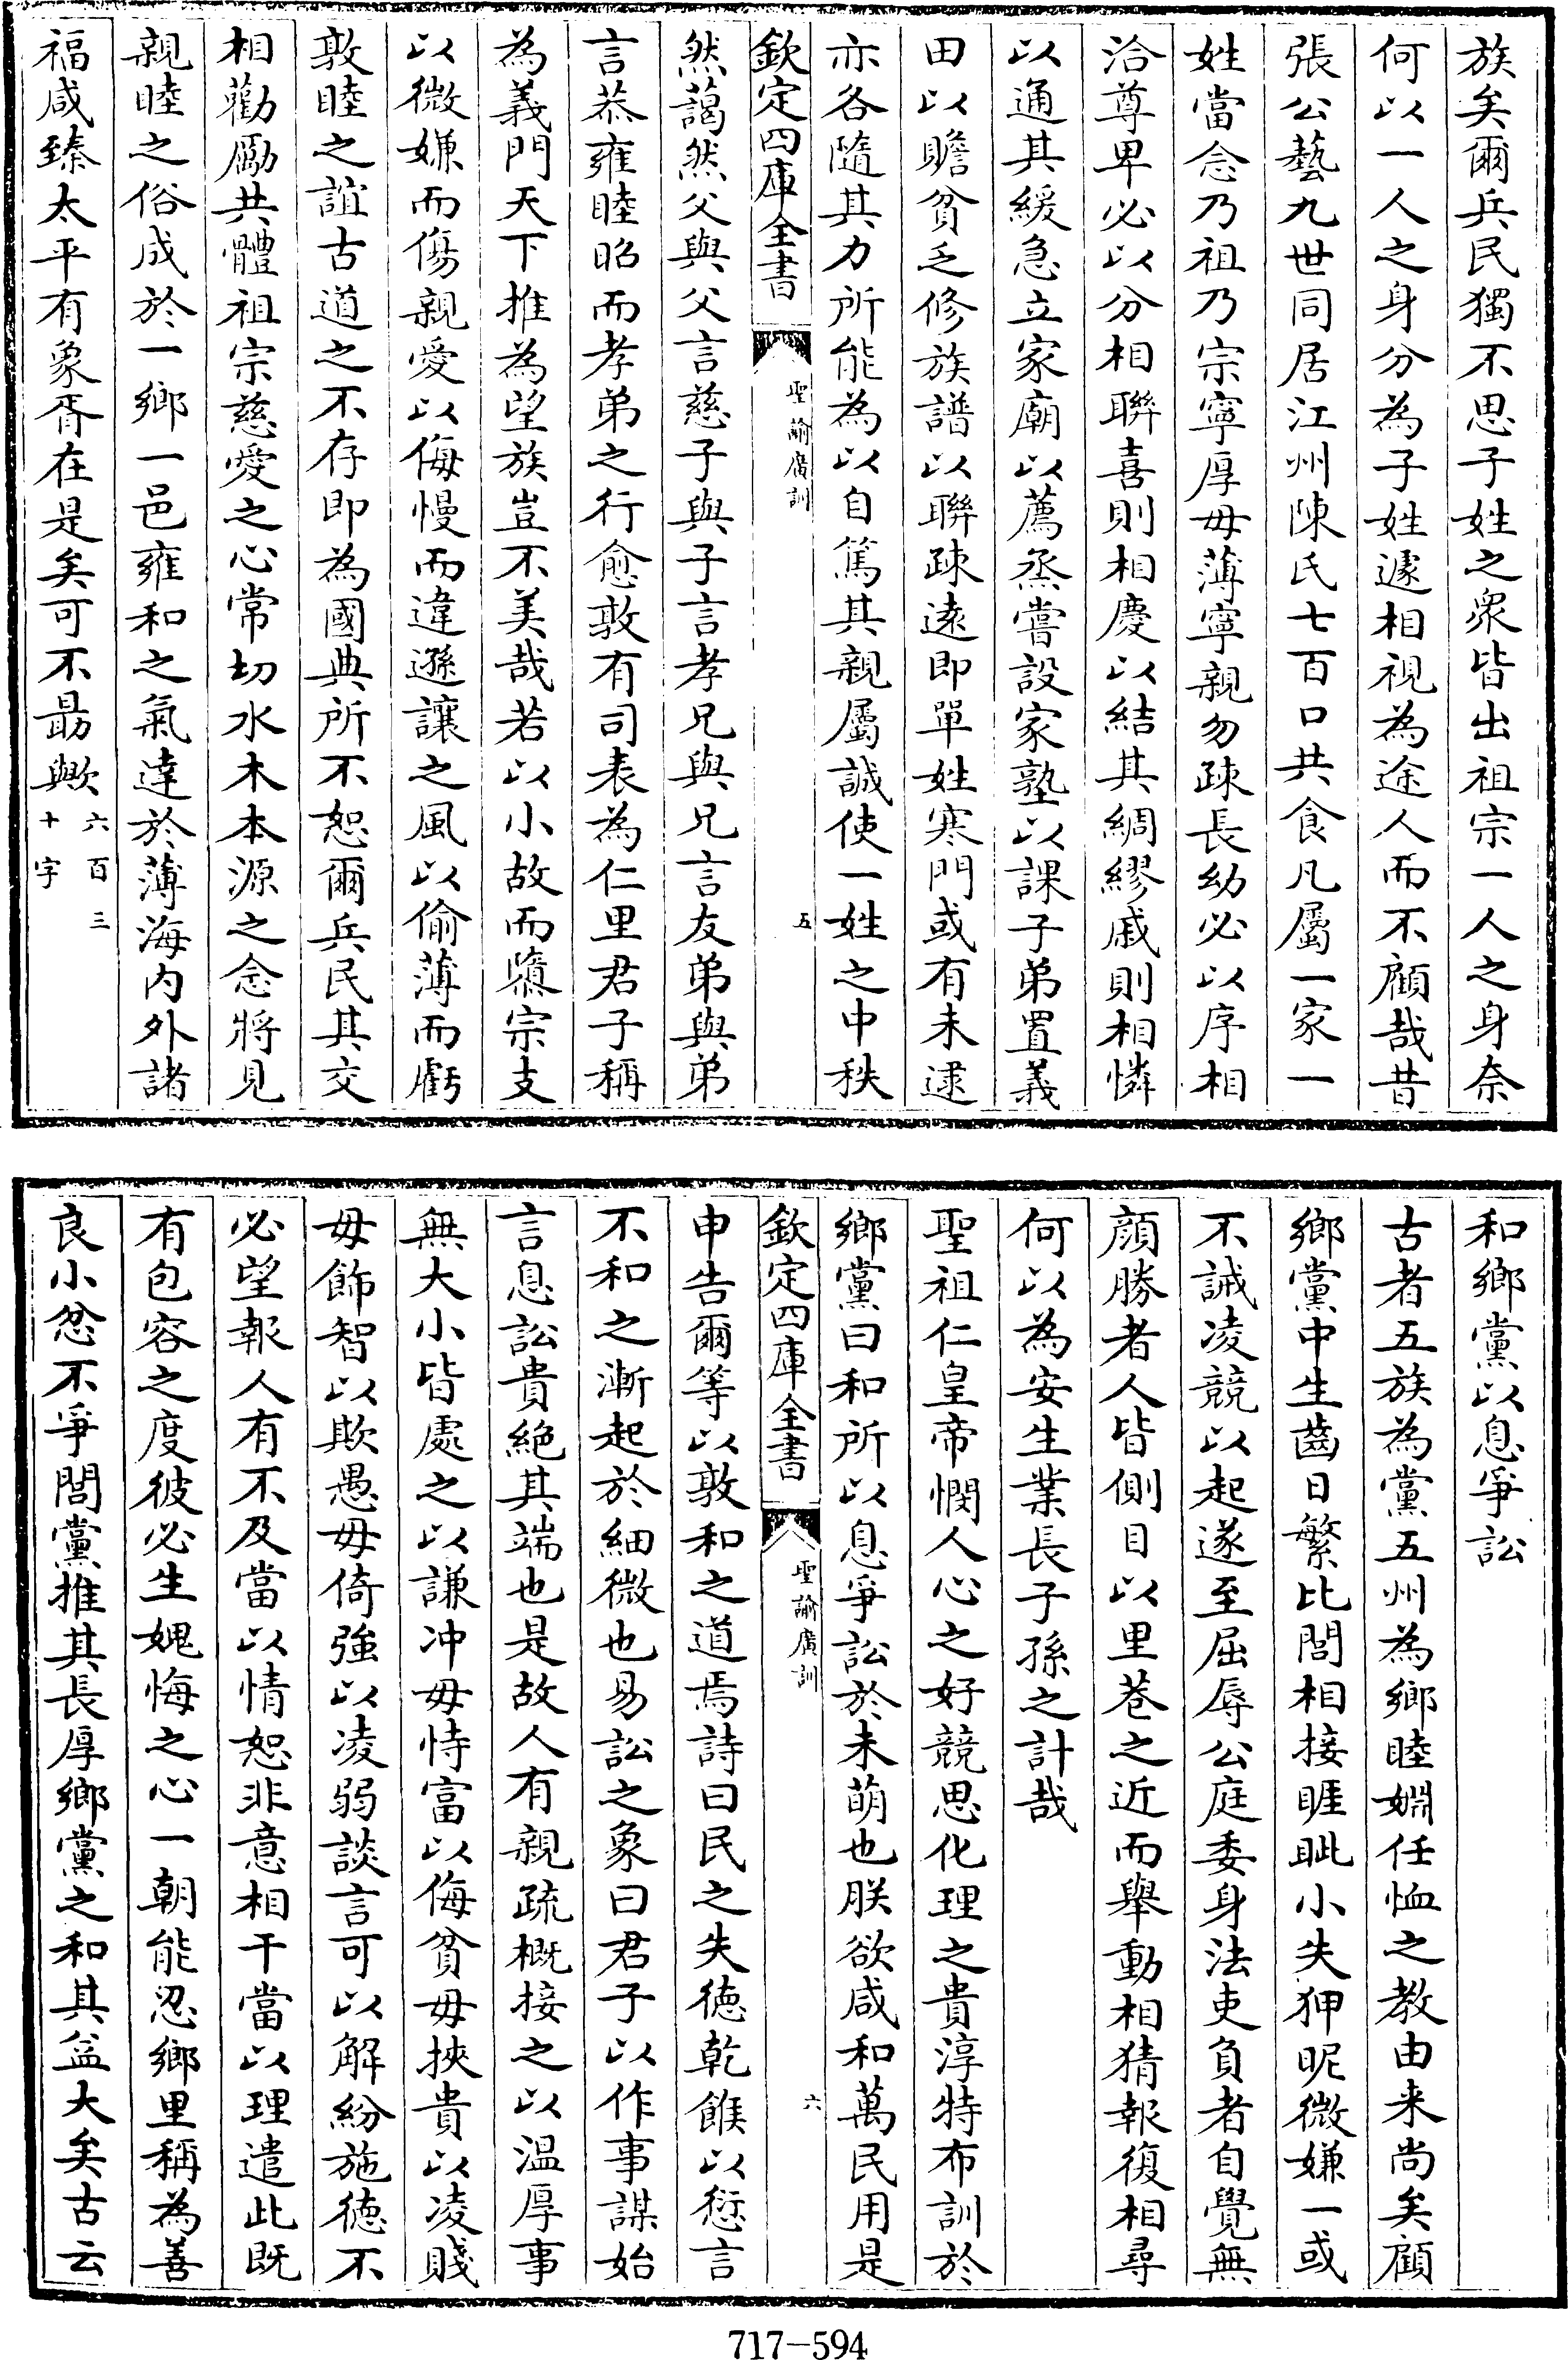 族矣爾兵民獨不思子姓之衆皆出祖宗一人之身奈
何以一人之身分為子姓遽相視為途人而不顧哉昔
張公藝九世同居江州陳氏七百口共食凡屬一家一
姓當念乃祖乃宗寧厚毋薄寧親勿疎長幼必以序相
洽尊卑必以分相聯喜則相慶以結其綢繆戚則相憐
以通其緩急立家廟以薦烝嘗設家塾以課子弟置義
田以贍貧乏修族譜以聯疎遠即單姓寒門或有未逮
亦各隨其力所能為以自篤其親屬誠使一姓之中秩
欽定四庫全書 聖諭廣訓 五
然藹然父與父言慈子與子言孝兄與兄言友弟與弟
言恭雍睦昭而孝弟之行愈敦有司表為仁里君子稱
為義門天下推為望族豈不美哉若以小故而隳宗支
以微嫌而傷親愛以侮慢而違遜讓之風以偷薄而虧
敦睦之誼古道之不存即為國典所不恕爾兵民其交
相勸勵共體祖宗慈愛之心常切水木本源之念將見
親睦之俗成於一鄉一邑雍和之氣達於薄海內外諸
福咸臻太平有象胥在是矣可不勗歟 六百三十字
和鄉黨以息爭訟
古者五族為黨五州為鄉睦婣任恤之教由来尚矣顧
鄉黨中生齒日繁比閭相接睚眦小失狎昵微嫌一或
不誡凌競以起遂至屈辱公庭委身法吏負者自覺無
顔勝者人皆側目以里巷之近而舉動相猜報復相尋
何以為安生業長子孫之計哉
聖祖仁皇帝憫人心之好競思化理之貴淳特布訓於
鄉黨曰和所以息爭訟於未萌也朕欲咸和萬民用是
欽定四庫全書 聖諭廣訓 六
申告爾等以敦和之道焉詩曰民之失德乾餱以愆言
不和之漸起於細微也易訟之象曰君子以作事謀始
言息訟貴絕其端也是故人有親疏概接之以溫厚事
無大小皆處之以謙冲毋恃富以侮貧毋挾貴以凌賤
毋飾智以欺愚毋倚強以凌弱談言可以解紛施德不
必望報人有不及當以情恕非意相干當以理遣此既
有包容之度彼必生媿悔之心一朝能忍鄉里稱為善
良小忿不爭閭黨推其長厚鄉黨之和其益大矣古云
717-594